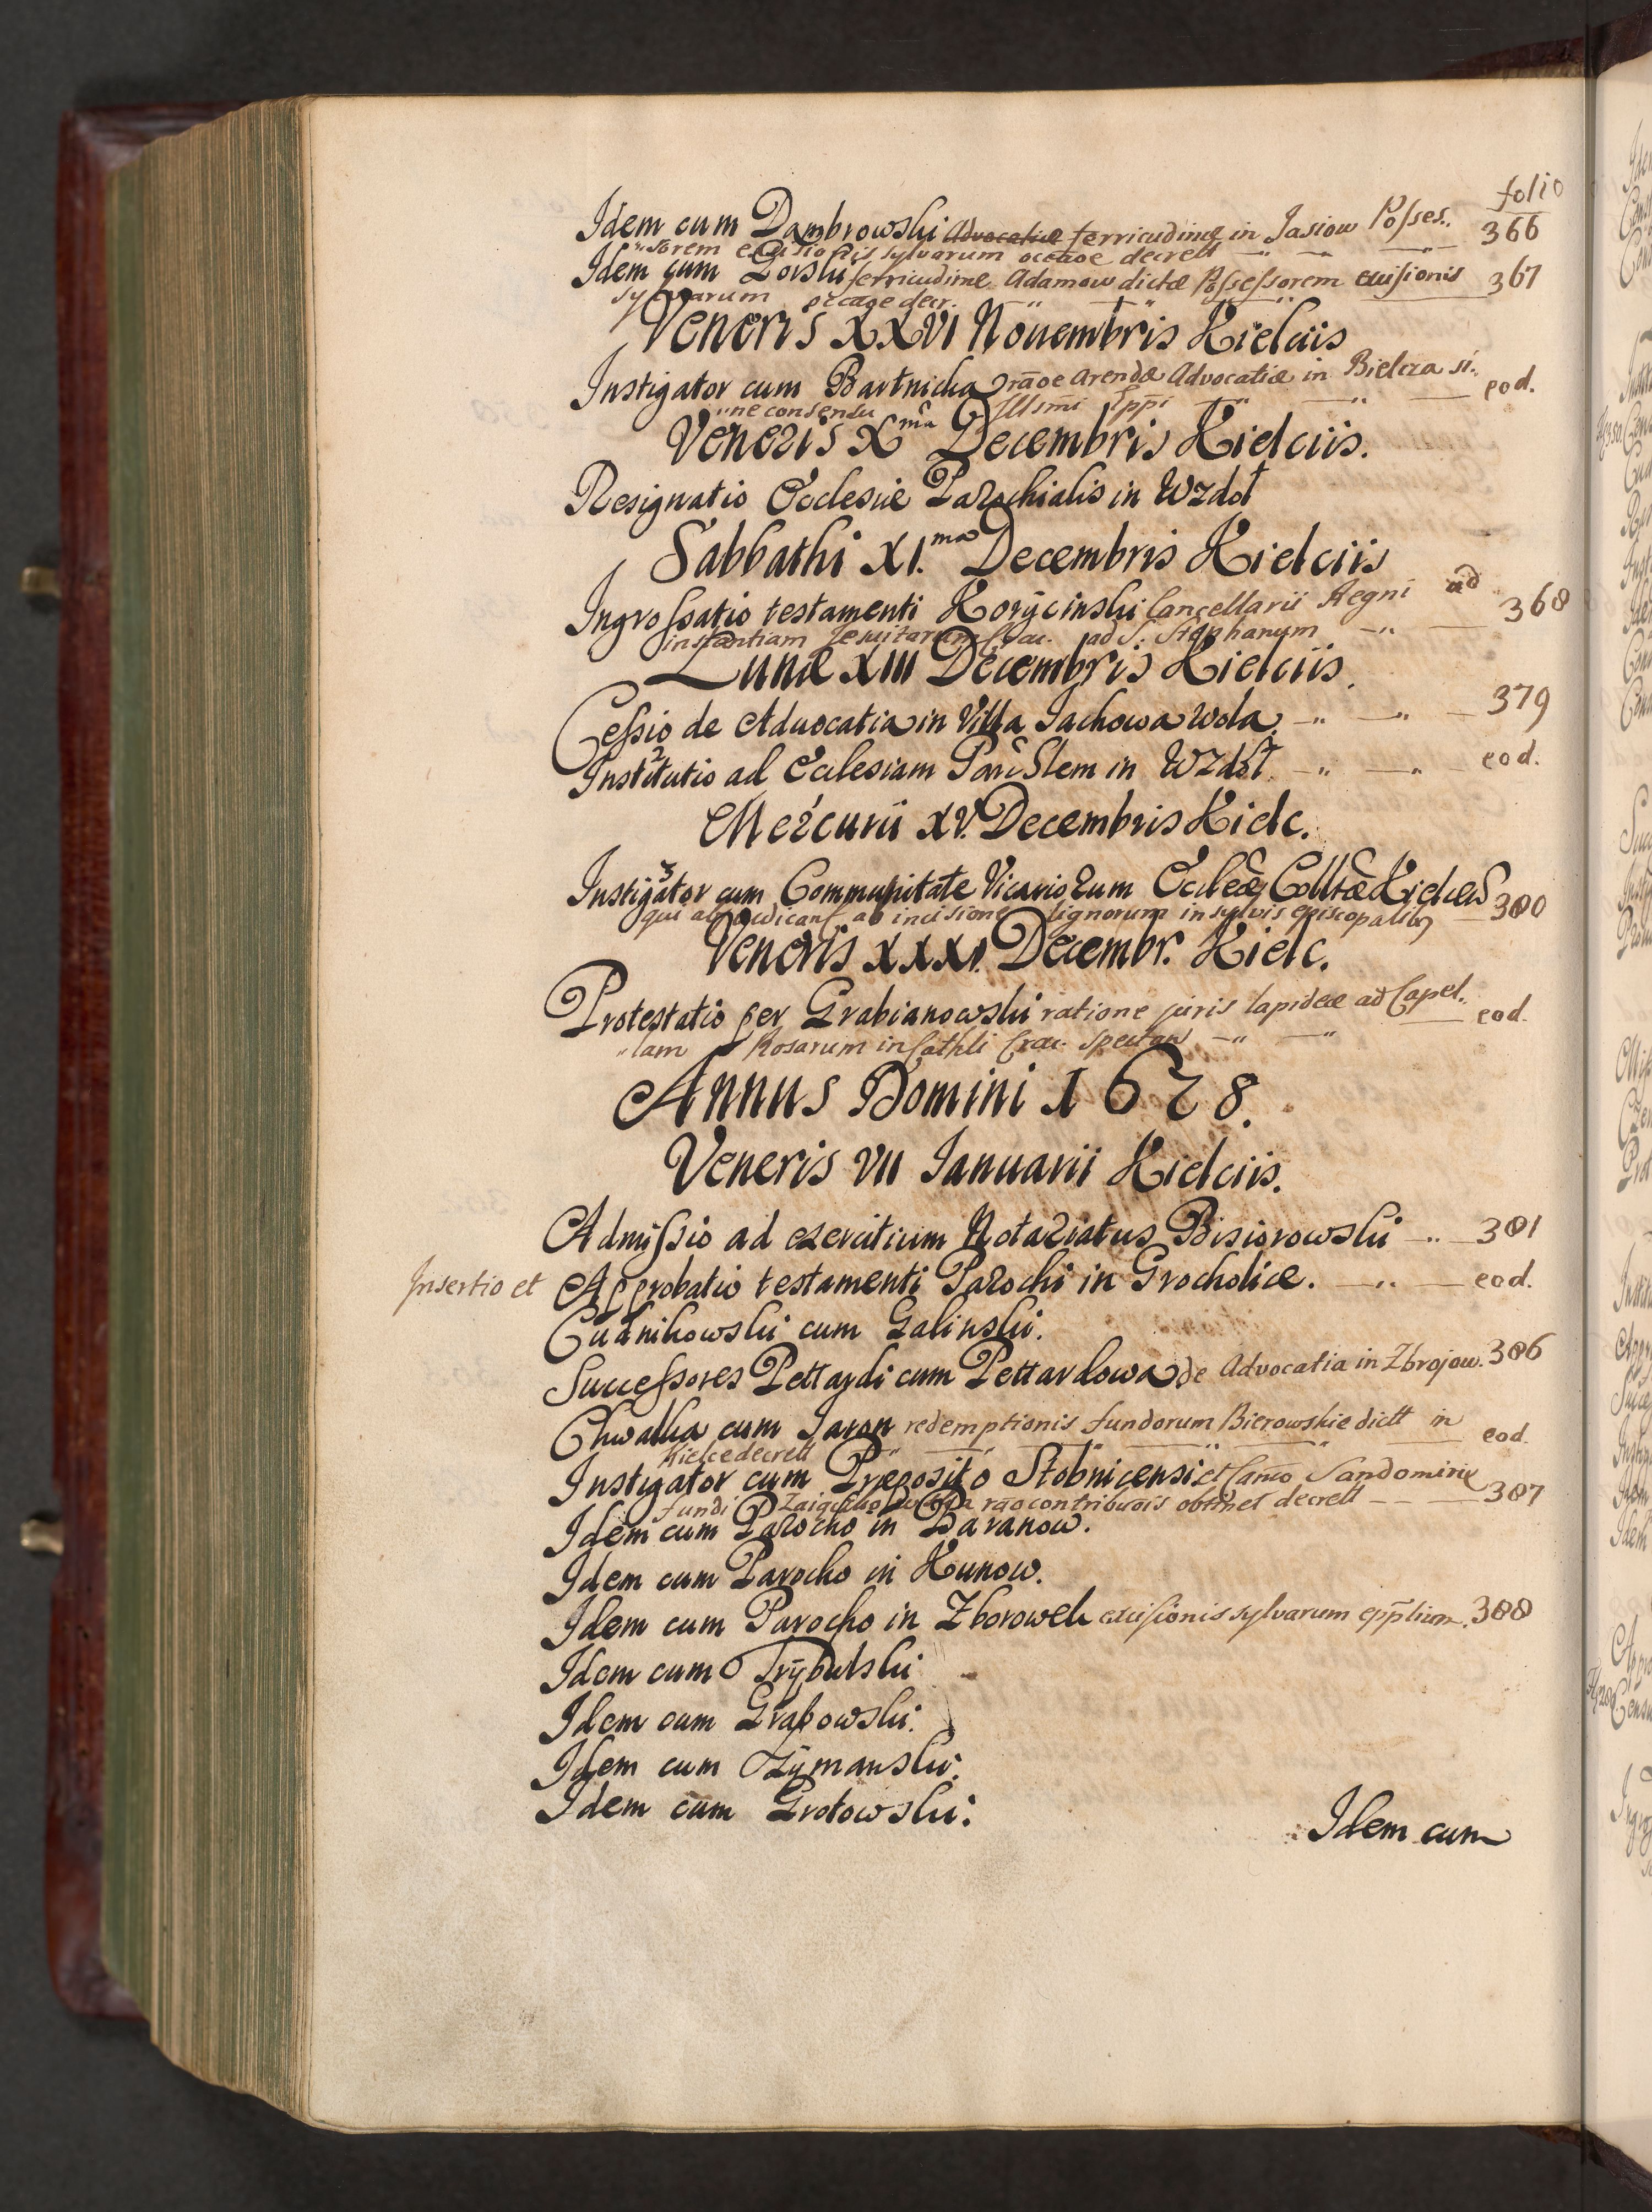 folio
Idem cum Dambrowski Advocatiæ ferricudinæ in Jasiow Posses.. 366
„sorem excisionis sylvarum occaoe decrett
Idem cum Gorski ferricudinæ Adamow dictæ Possessorem excisionis 367
sylvarum occaoe decr.
Veneris XXVI Nouembris Kielciis
Instigator cum Bartnicka raoe Arendæ Advocatiæ in Bielcza si„ eod.
„ne consensu Illsmi Eppi
Veneris Xma Decembris Kielciis.
Resignatio Ecclesiæ Parochialis in Wzdoł
Sabbathi XI.ma Decembris Kielciis
Ingrossatio testamenti Korÿcinski Cancellarii Regni ad 368
instantiam Jesuitarum Crac. ad S. Stephanum
Lunæ XIII Decembris Kielciis.
Cessio de Aduocatia in Villa Jachowa Wola. 379
Institutio ad Ecclesiam Parochlem in Wzdoł. eod.
Mercurii XV. Decembris Kielc.
Instigator cum Communitate Vicariorum Eccleæ Colltæ Kielcen 380
qui abiudicant ab incisione lignorum in sylvis episcopalibus
Veneris XXXI. Decembr. Kielc.
Protestatio per Grabianowski ratione juris lapideæ ad Capel„ eod.
„lam Rosarum in Cathli Crac. spectan
Annus Domini 1678.
Veneris VII Ianuarii Kielciis.
Admissio ad exercitium Notariatus Bisiorowski 381
Insertio et Approbatio testamenti Parochi in Grocholice. eod.
Cudnikowski cum Galinski.
Successores Pettardi cum Pettardowa de Advocatia in Zbrojow. 386
Chwalka cum Jaron redemptionis fundorum Bierowskie dictt in eod.
Kielce decrett
Instigator cum Præposito Stobnicensi et Canco Sandomiriæ 387
fundi raõ contribuõis obtinet decrett
Idem cum Parocho in Baranow.
Idem cum Parocho in Kunow.
Idem cum Parocho in Zborowek excisionis sylvarum epplium. 388
Idem cum Trÿbulski
Idem cum Grabowski.
Idem cum Zÿmanski.
Idem cum Grotowski.
Idem cum